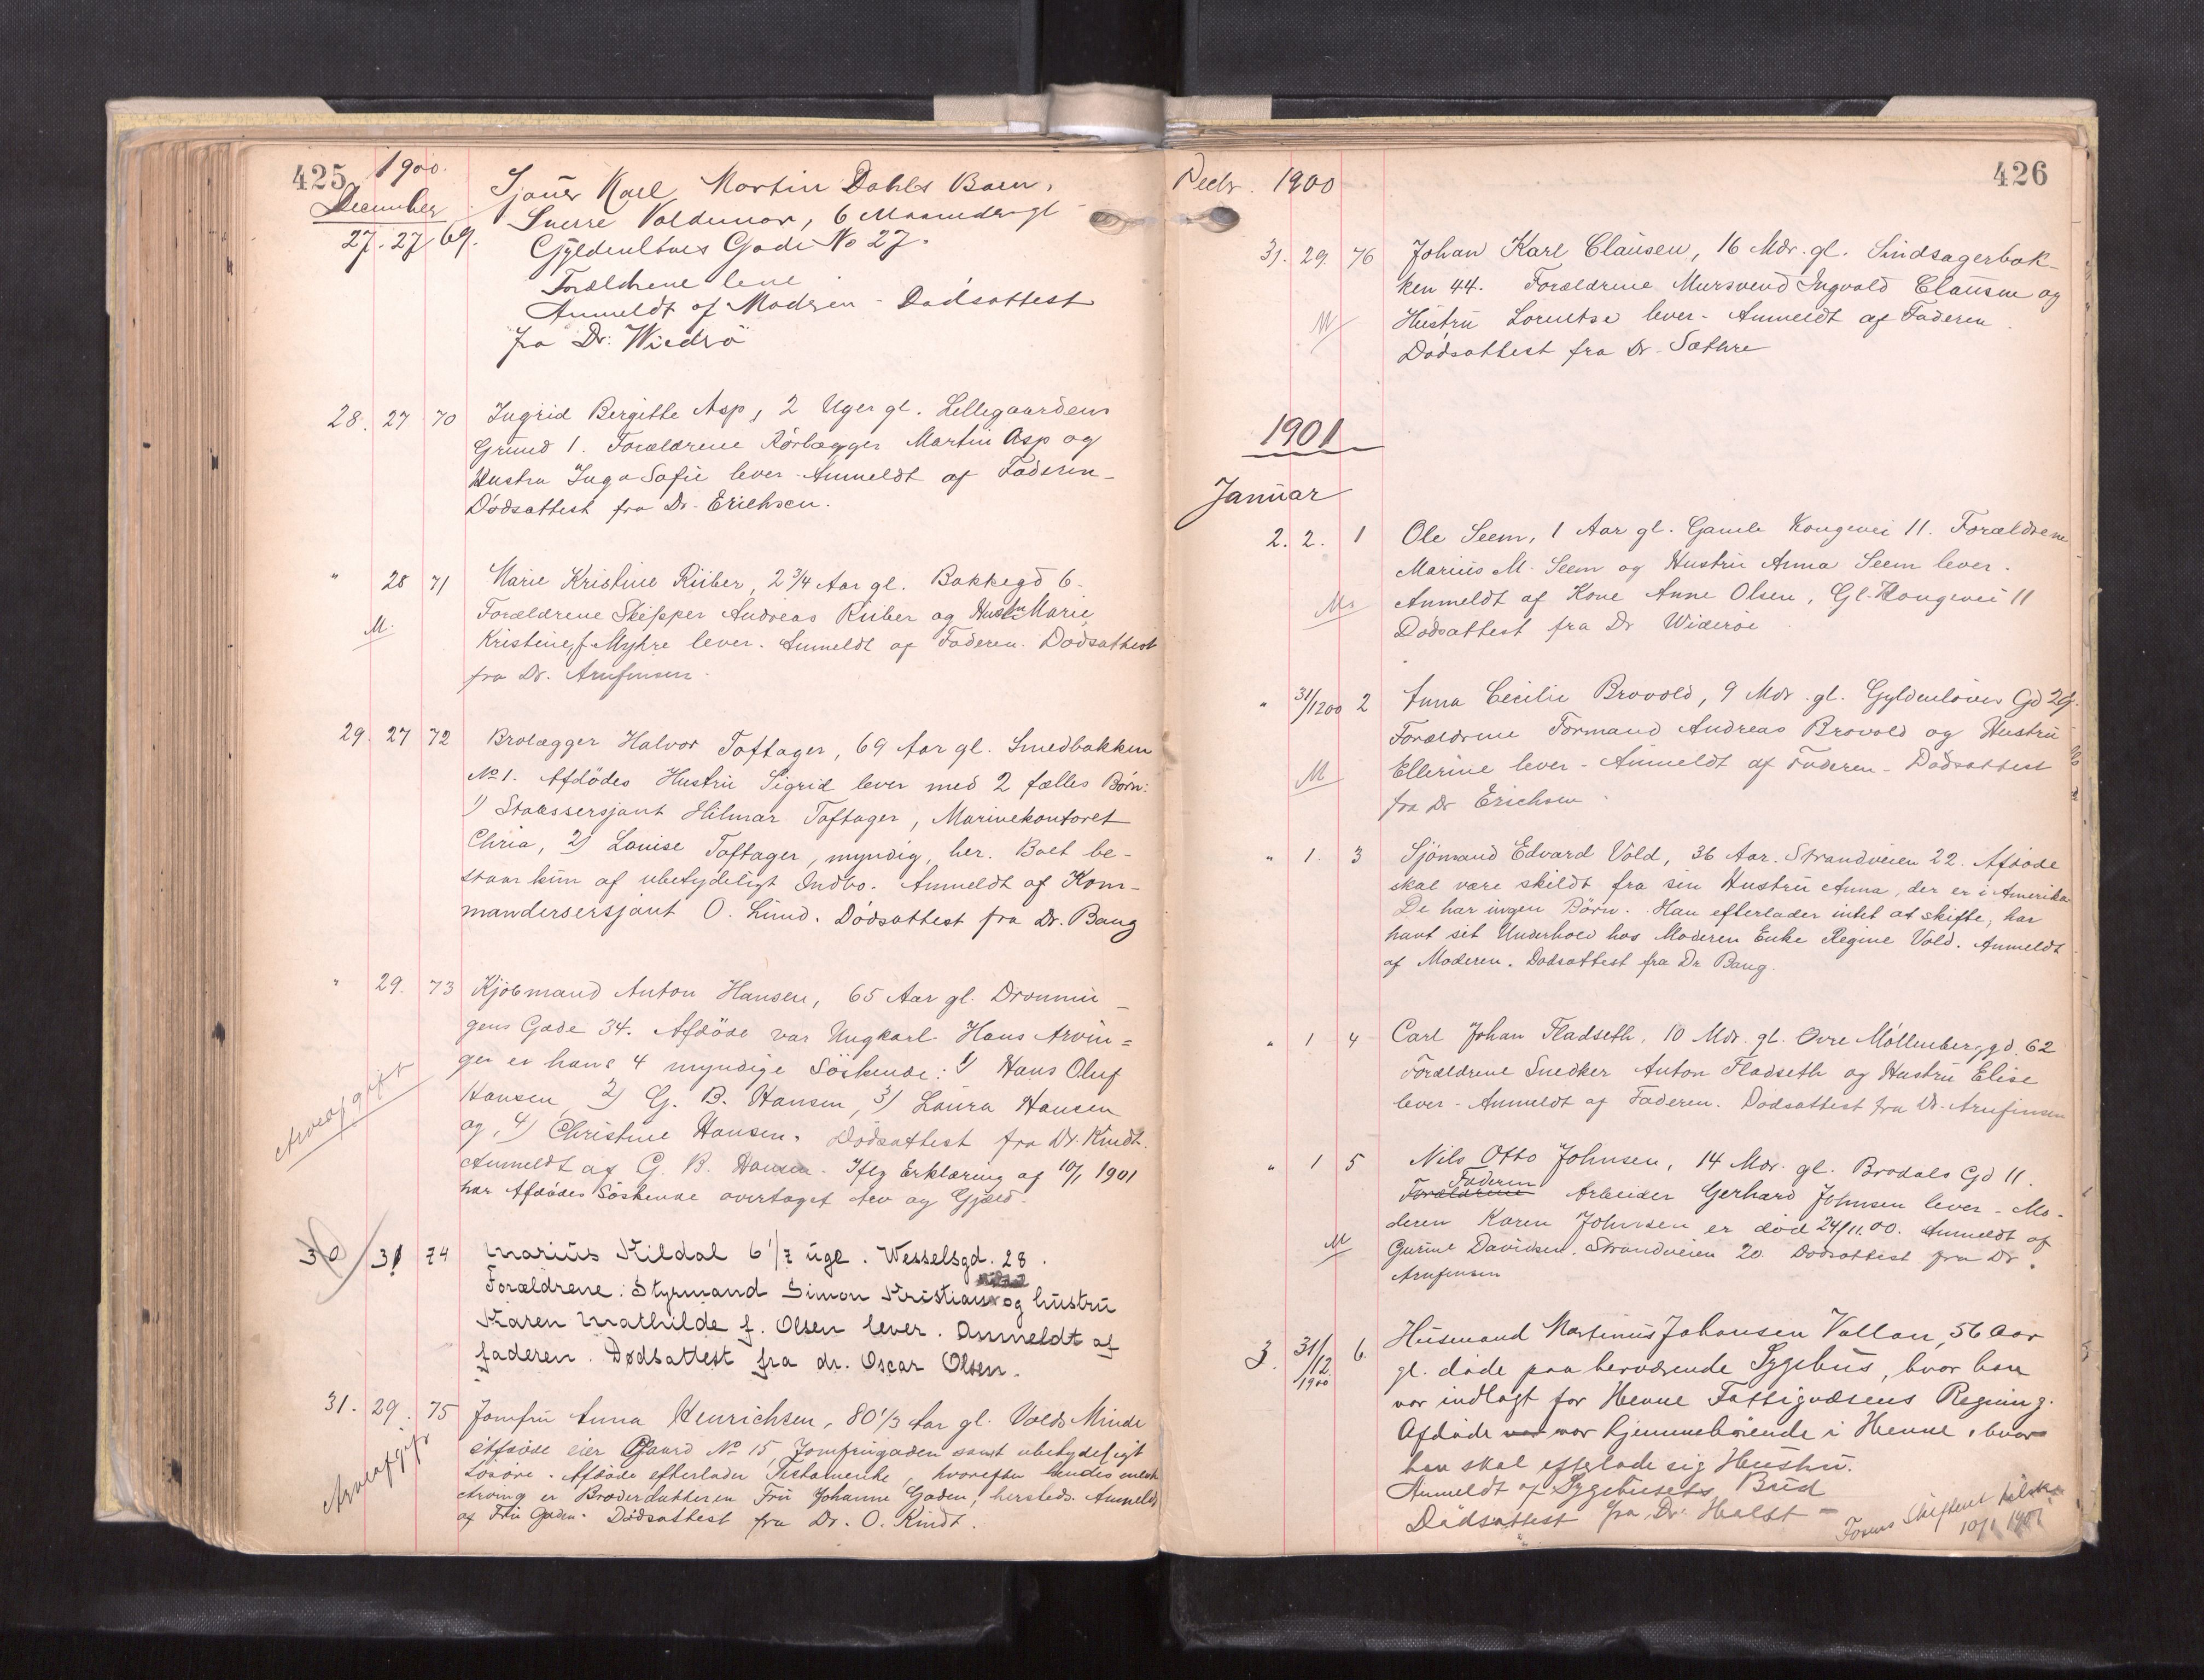 425 1900.
December
27. 27 69. Sjauer Karl Martin Dahls Barn,
Sverre Valdemar, 6 Maaneder gl
Gyldenløves Gade No 27.
Forældrene leve
Anmeldt af Moderen - Dødsattest
fra Dr. Widerø
28. 27 70 Ingrid Bergitte Asp, 2 Uger gl. Lillegaardens
Grund 1. Forældrene Rørlægger Martin Asp og
Hustru Inga Sofie lever - Anmeldt af Faderen -
Dödsattest fra Dr. Erichsen.
" 28 71 Marie Kristine Rüber, 2 3/4 Aar gl. Bakkegd 6.
M. Forældrene Skipper Andreas Rüber og Hustru Marie
Kristine, f. Myhre lever. Anmeldt af Faderen. Dödsattest
fra Dr. Arnfinsen.
29. 27 72 Brolægger Halvor Toftager, 69 Aar gl. Smedbakken
No 1. Afdödes Hustru Sigrid lever med 2 fælles Börn:
1) Stabssersjant Hilmar Toftager, Marinekontoret
Chria, 2) Louise Toftager, myndig, her. Boet be-
staar kun af ubetydeligt Indbo. Anmeldt af Kom-
mandersersjant O. Lund. Dödsattest fra Dr. Bang
" 29. 73 Kjöbmand Anton Hansen, 65 Aar gl. Dronnin-
gens Gade 34. Afdöde var Ungkarl. Hans Arvin=
ger er hans 4 myndige Söskende: 1) Hans Oluf
Arveafgift Hansen, 2) G. B. Hansen, 3) Laura Hansen
og, 4) Christine Hansen. Dödsattest fra Dr. Kindt.
Anmeldt af G. B. Hansen. Iflg Erklæring af 10/1 1901
har Afdödes Söskende overtaget Arv og Gjæld.
30 31 74 Marius Kildal 6 1/2 uge. Wesselsgd. 28.
Forældrene: Styrmand Simon Kristian og hustru
Karen Mathilde f. Olsen lever. Anmeldt af
faderen. Dødsattest fra dr. Oscar Olsen.
31. 29. 75 Jomfru Anna Henrichsen, 80 1/3 Aar gl. Volds Minde
Arveafgift Afdöde eier Gaard No 15 Jomfrugaden samt ubetydeligt
Lösöre. Afdöde efterlader Testamente, hvorefter hendes eneste
Arving er Broderdatteren Fru Johanne Gaden, hersteds. Anmeldt
af Fru Gaden. Dödsattest fra Dr. O. Kindt.
Decbr. 1900 426
31. 29. 76 Johan Karl Clausen, 16 Mdr. gl. Sindsagerbak-
ken 44. Forældrene Mursvend Ingvald Clausen og
M Hustru Lorentse lever - Anmeldt af Faderen.
Dödsattest fra Dr. Sæthre
1901
Januar
2. 2. 1 Ole Seem, 1 Aar gl. Gamle Kongevei 11. Forældrene
Marius M. Seem og Hustru Anna Seem lever.
M Anmeldt af Kone Anne Olsen, Gl. Kongevei 11
Dødsattest fra Dr Widerøe
" 31/12 00 2 Anna Cecilie Brovold, 9 Mdr. gl. Gyldenløves Gd 29.
Forældrene Formand Andreas Brovold og Hustru
M Ellerine lever - Anmeldt af Faderen - Dødsattest
fra Dr Erichsen
" 1. 3 Sjömand Edvard Vold, 36 Aar. Strandveien 22. Afdøde
skal være skildt fra sin Hustru Anna, der er i Amerika
De har ingen Börn. Han efterlader intet at skifte, har
havt sit Underhold hos Moderen Enke Regine Vold. Anmeldt
af Moderen. Dødsattest fra Dr. Bang.
" 1 4 Carl Johan Fladseth, 10 Mdr. gl. Övre Möllenberggd. 62
Forældrene Snedker Anton Fladseth og Hustru Elise
lever - Anmeldt af Faderen. Dødsattest fra Dr. Arnfinsen
" 1 5 Nils Otto Johnsen, 14 Mdr. gl. Brodals Gd 11.
Faderen
Forældrene Arbeider Gerhard Johnsen lever - Mo-
deren Karen Johnsen er död 24/11.00. Anmeldt af
M Gurine Davidsen, Strandveien 20. Dødsattest fra Dr.
Arnfinsen
3. 31/12 1900 6 Husmand Martinus Johansen Vallan, 56 Aar
gl. døde paa herværende Sygehus, hvor han
var indlagt for Hevne Fattigvæsens Regning.
Afdøde var var hjemmehörende i Hevne, hvor
han skal efterlade sig Hustru.
Anmeldt af Sygehusets Bud
Dødsattest fra Dr. Holst -
Fosens Skifteret tilskr.
10/1 1901